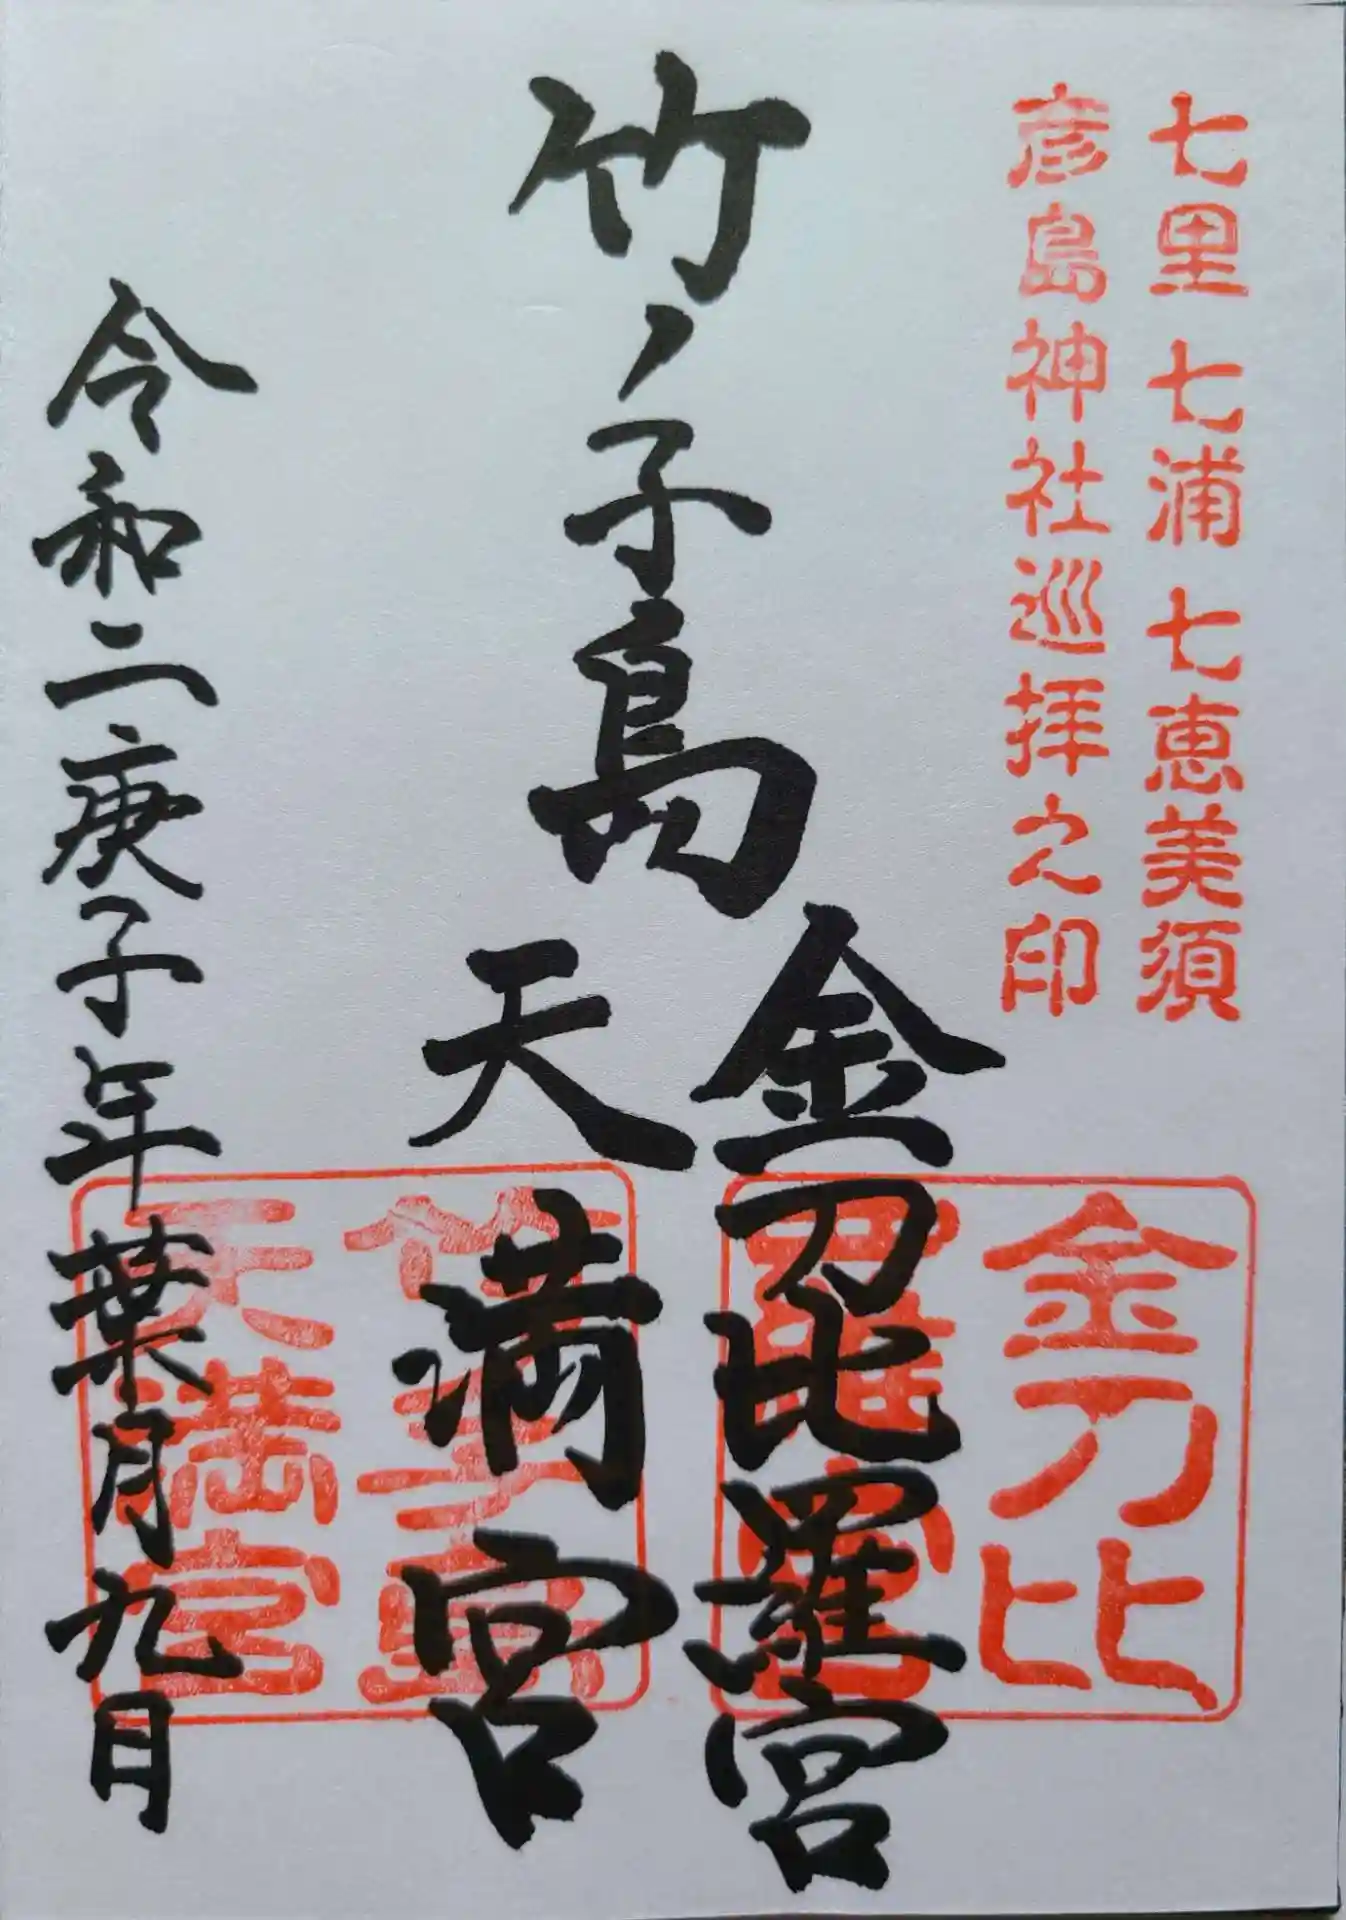 七里七浦七恵美須
彦島神社巡拝之印
竹ノ子島
金刀比羅宮
天満宮
令和二庚子年葉月九日
金刀比
羅宮
竹ノ子島
天満宮